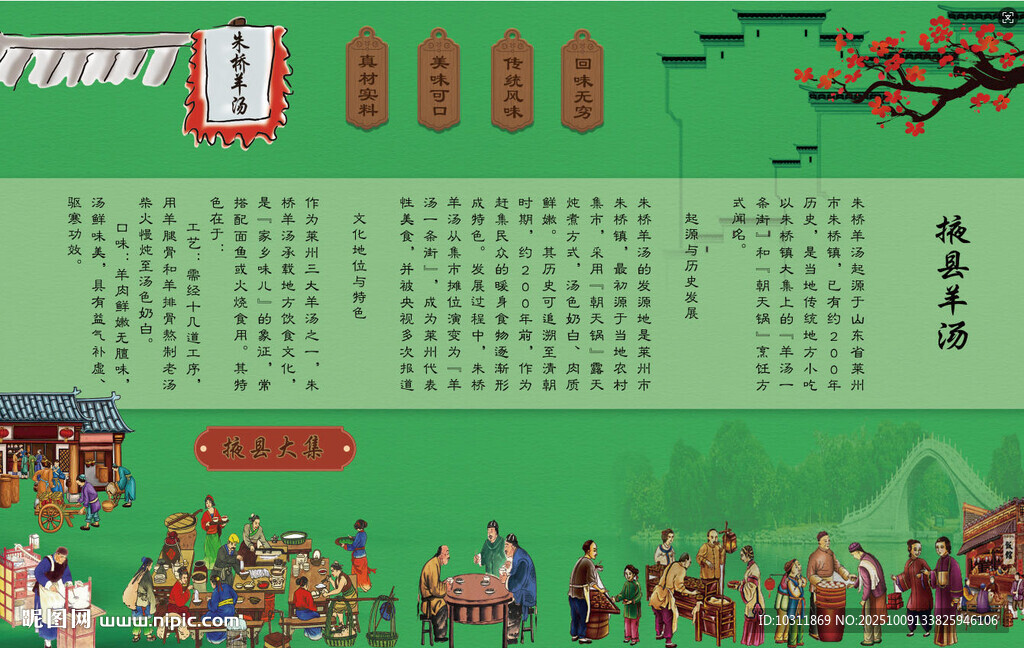 朱桥羊汤
真材实料
美味可口
传统风味
回味无穷
掖县羊汤
朱桥羊汤起源于山东省莱州
市朱桥镇,已有约200年
历史,是当地传统地方小吃
以朱桥镇大集上的『羊汤一
条街』和『朝天锅』烹饪方
式闻名。
起源与历史发展
朱桥羊汤的发源地是莱州市
朱桥镇,最初源于当地农村
集市,采用『朝天锅』露天
炖煮方式,汤色奶白、肉质
鲜嫩。其历史可追溯至清朝
时期,约200年前,作为
赶集民众的暖身食物逐渐形
成特色。发展过程中,朱桥
羊汤从集市摊位演变为『羊
汤一条街』,成为莱州代表
性美食,并被央视多次报道
文化地位与特色
作为莱州三大羊汤之一,朱
桥羊汤承载地方饮食文化,
是『家乡味儿』的象征,常
搭配面鱼或火烧食用。其特
色在于:
工艺:需经十几道工序,
用羊腿骨和羊排骨熬制老汤
柴火慢炖至汤色奶白。
口味:羊肉鲜嫩无膻味,
汤鲜味美,具有益气补虚、
驱寒功效。
掖县大集
昵图网 www.nipic.com
ID:10311869 NO:20251009133825946106